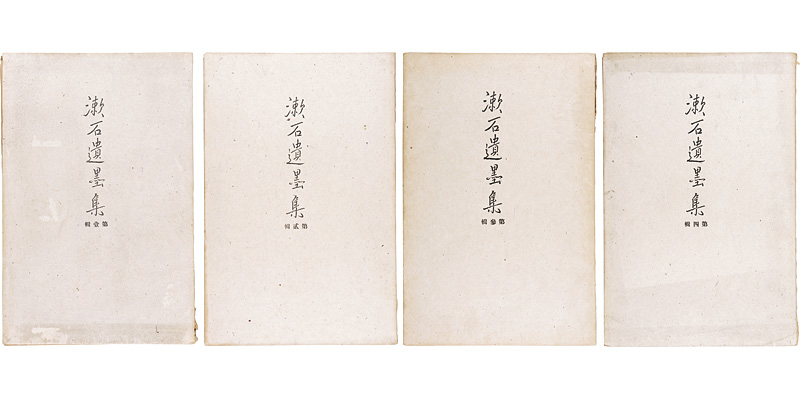 漱石遺墨集
第壹輯
漱石遺墨集
第貳輯
漱石遺墨集
第參輯
漱石遺墨集
第四輯